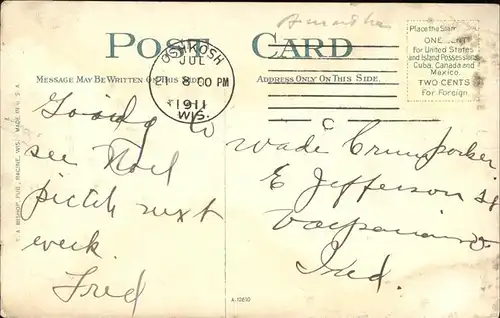 POST CARD
OSHKOSH
JUL
21 8 00 PM
1911
WIS.
Place the Stamp
ONE CENT
for United States
and Island Possessions
Cuba, Canada and
Mexico.
TWO CENTS
For Foreign.
MESSAGE MAY BE WRITTEN ON THIS SIDE.
ADDRESS ONLY ON THIS SIDE.
Going to
see Noel
pitch next
week
Fred
Wade Crumpacker
E Jefferson St
Valparaiso
Ind.
E. A. BISHOP, PUB., RACINE, WIS. MADE IN U.S.A.
A-12610